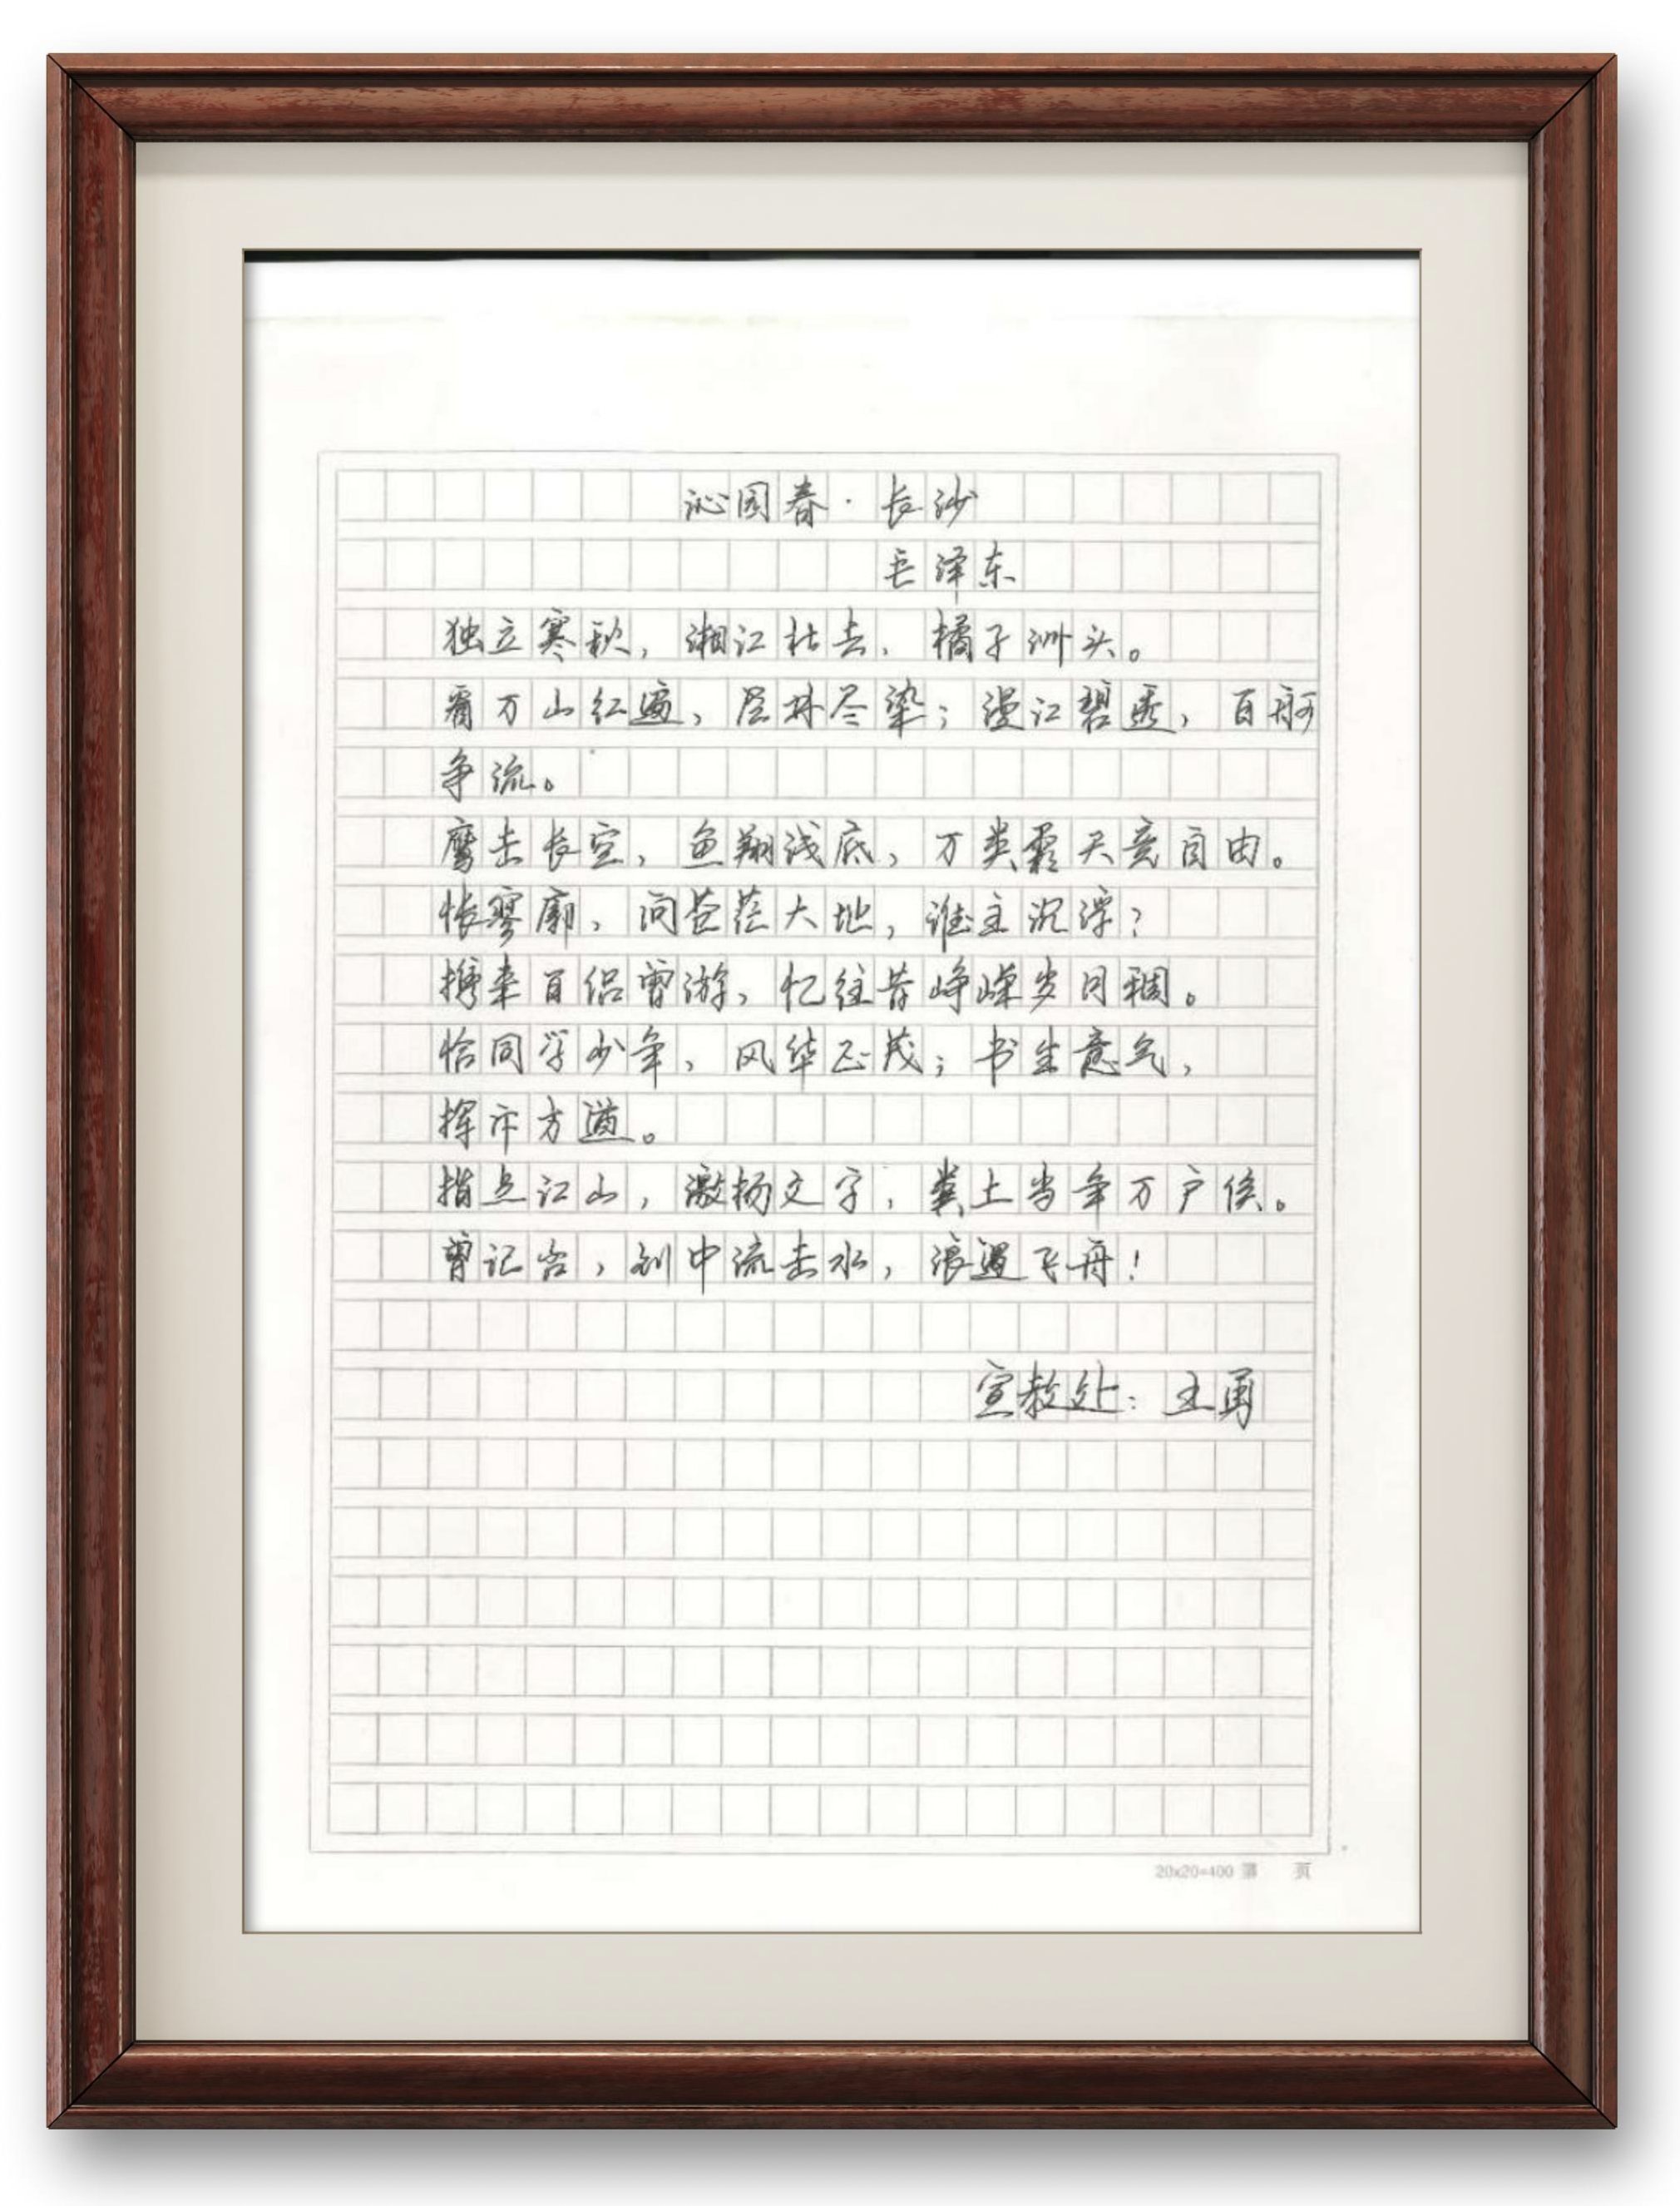 沁园春·长沙
毛泽东
独立寒秋，湘江北去，橘子洲头。
看万山红遍，层林尽染；漫江碧透，百舸
争流。
鹰击长空，鱼翔浅底，万类霜天竞自由。
怅寥廓，问苍茫大地，谁主沉浮？
携来百侣曾游，忆往昔峥嵘岁月稠。
恰同学少年，风华正茂；书生意气，
挥斥方遒。
指点江山，激扬文字，粪土当年万户侯。
曾记否，到中流击水，浪遏飞舟！
宣教处：王勇
20x20=400 第 页